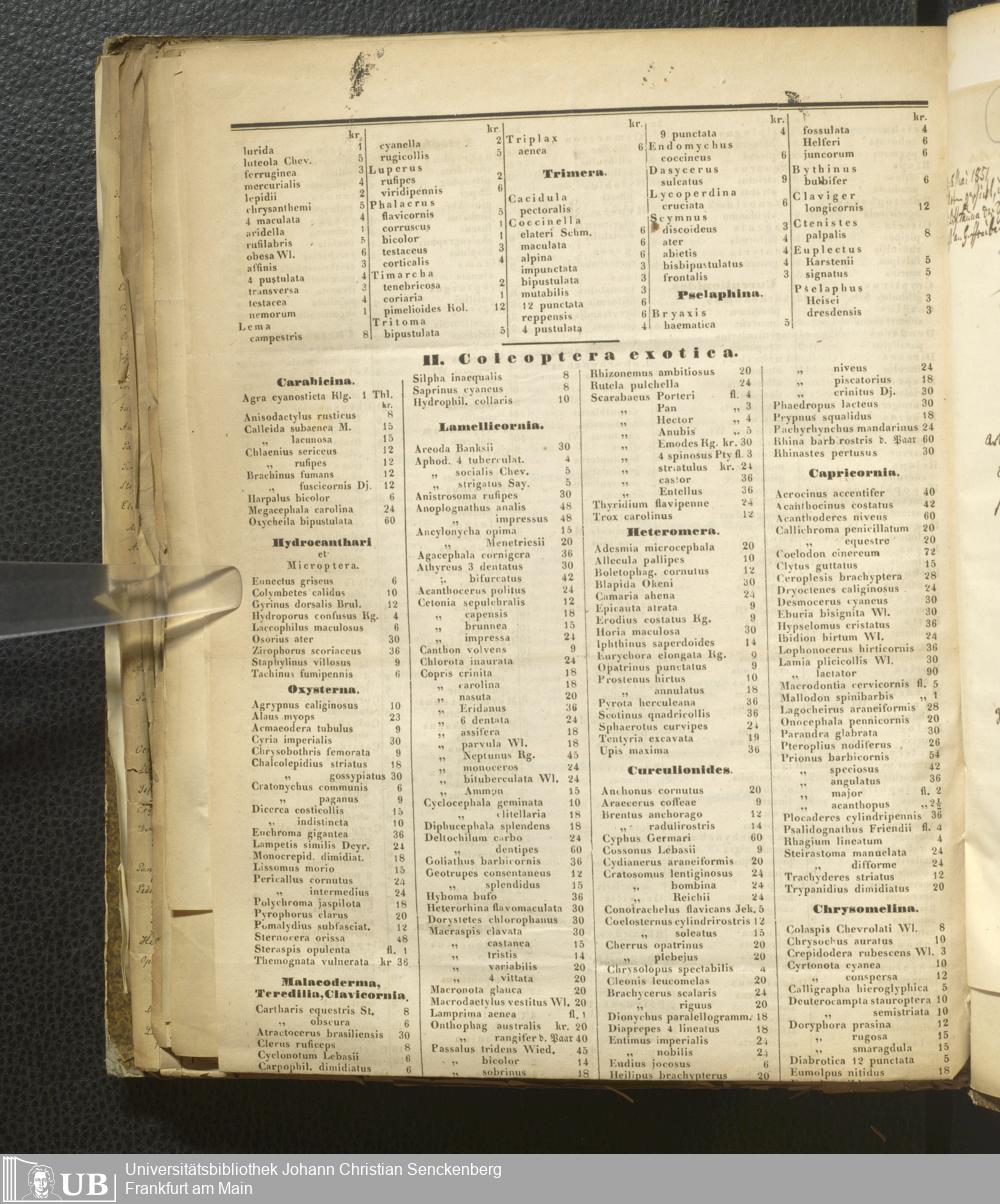 kr.
lurida 1
luteola Chev. 5
ferruginea 3
mercurialis 4
lepidii 2
chrysanthemi 5
4 maculata 4
aridella 1
rufilabris 5
obesa Wl. 6
affinis 3
4 pustulata 4
transversa 3
testacea 4
nemorum 1
Lema
campestris 8
kr.
cyanella 2
rugicollis 5
Luperus
rufipes 2
viridipennis 6
Phalacrus
flavicornis 5
corruscus 1
bicolor 1
testaceus 3
corticalis 4
Timarcha
tenebricosa 2
coriaria 1
pimelioides Kol. 12
Tritoma
bipustulata 5
kr.
Triplax
aenea 6
Trimera.
Cacidula
pectoralis
Coccinella
elateri Schm. 6
maculata 6
alpina 6
impunctata 3
bipustulata 3
mutabilis 3
12 punctata 6
reppensis 6
4 pustulata 4
kr.
9 punctata 4
Endomychus
coccineus 6
Dasycerus
sulcatus 9
Lycoperdina
cruciata 6
Scymnus
discoideus 3
ater 4
abietis 4
bisbipustulatus 4
frontalis 3
Pselaphina.
Bryaxis
haematica 5
kr.
fossulata 4
Helferi 6
juncorum 6
Bythinus
bulbifer 6
Claviger
longicornis 12
Ctenistes
palpalis 8
Euplectus
Karstenii 5
signatus 5
Pselaphus
Heisei 3
dresdensis 3
II. Coleoptera exotica.
Carabicina.
Agra cyanosticta Klg. 1 Thl.
kr.
Anisodactylus rusticus 8
Calleida subaenea M. 15
„ lacunosa 15
Chlaenius sericeus 12
„ rufipes 12
Brachinus fumans 12
„ fuscicornis Dj. 12
Harpalus bicolor 6
Megacephala carolina 24
Oxycheila bipustulata 60
Hydrocanthari
et
Microptera.
Eunectus griseus 6
Colymbetes calidus 10
Gyrinus dorsalis Brul. 12
Hydroporus confusus Kg. 4
Laccophilus maculosus 6
Osorius ater 30
Zirophorus scoriaceus 36
Staphylinus villosus 9
Tachinus fumipennis 6
Oxysterna.
Agrypnus caliginosus 10
Alaus myops 23
Acmaeodera tubulus 9
Cyria imperialis 30
Chrysobothris femorata 9
Chalcolepidius striatus 18
„ gossypiatus 30
Cratonychus communis 6
„ paganus 9
Dicerca costicollis 15
„ indistincta 10
Euchroma gigantea 36
Lampetis similis Deyr. 24
Monocrepid. dimidiat. 18
Lissomus morio 15
Pericallus cornutus 24
„ intermedius 24
Polychroma jaspilota 18
Pyrophorus clarus 20
Pomalydius subfasciat. 12
Sternocera orissa 48
Steraspis opulenta fl. 1
Themognata vulnerata kr 36
Malacoderma,
Teredilia, Clavicornia.
Cartharis equestris St. 8
„ obscura 6
Atractocerus brasiliensis 30
Clerus ruficeps 8
Cyclonotum Lebasii 6
Carpophil. dimidiatus 6
Silpha inaequalis 8
Saprinus cyaneus 8
Hydrophil. collaris 10
Lamellicornia.
Areoda Banksii 30
Aphod. 4 tuberculat. 4
„ socialis Chev. 5
„ strigatus Say. 5
Anistrosoma rufipes 30
Anoplognathus analis 48
„ impressus 48
Ancylonycha opima 15
„ Menetriesii 20
Agacephala cornigera 36
Athyreus 3 dentatus 30
„ bifurcatus 42
Acanthocerus politus 24
Cetonia sepulchralis 12
„ capensis 18
„ brunnea 15
„ impressa 24
Canthon volvens 9
Chlorota inaurata 24
Copris crinita 18
„ carolina 18
„ nasuta 20
„ Eridanus 36
„ 6 dentata 24
„ assifera 18
„ parvula Wl. 18
„ Neptunus Rg. 45
„ monoceros 24
„ bituberculata Wl. 24
„ Ammon 15
Cyclocephala geminata 10
„ clitellaria 18
Diphucephala splendens 18
Deltochilum carbo 24
„ dentipes 60
Goliathus barbicornis 36
Geotrupes consentaneus 12
„ splendidus 15
Hyboma bufo 36
Heterorhina flavomaculata 30
Dorystetes chlorophanus 30
Macraspis clavata 30
„ castanea 15
„ tristis 14
„ variabilis 20
„ 4 vittata 20
Macronota glauca 20
Macrodactylus vestitus Wl. 20
Lamprima aenea fl. 1
Onthophag australis kr. 20
„ rangifer d. Paar 40
Passalus tridens Wied. 45
„ bicolor 14
„ sobrinus 18
Rhizonemus ambitiosus 20
Rutela pulchella 24
Scarabaeus Porteri fl. 4
„ Pan „ 3
„ Hector „ 4
„ Anubis „ 5
„ Emodes Kg. kr. 30
„ 4 spinosus Pty fl. 3
„ striatulus kr. 24
„ castor 36
„ Entellus 36
Thyridium flavipenne 24
Trox carolinus 12
Heteromera.
Adesmia microcephala 20
Allecula pallipes 10
Boletophag. cornutus 12
Blapida Okeni 30
Camaria ahena 24
Epicauta atrata 9
Erodius costatus Kg. 9
Horia maculosa 30
Iphthinus saperdoides 14
Eurychora elongata Kg. 9
Opatrinus punctatus 9
Prostenus hirtus 10
„ annulatus 18
Pyrota herculeana 36
Scotinus quadricollis 36
Sphaerotus curvipes 24
Tentyria excavata 19
Upis maxima 36
Curculionides.
Anchonus cornutus 20
Araecerus coffeae 9
Brentus anchorago 12
„ radulirostris 14
Cyphus Germari 60
Cossonus Lebasii 9
Cydianerus araneiformis 20
Cratosomus lentiginosus 24
„ bombina 24
„ Reichii 24
Conotrachelus flavicans Jek. 5
Coelosternus cylindrirostris 12
„ soleatus 15
Cherrus opatrinus 20
„ plebejus 20
Chrysolopus spectabilis 4
Cleonis leucomelas 20
Brachycerus scalaris 24
„ riguus 20
Dionychus paralellogramm. 18
Diaprepes 4 lineatus 18
Entimus imperialis 24
„ nobilis 24
Eudius jocosus 6
Heilipus brachypterus 20
„ niveus 24
„ piscatorius 18
„ crinitus Dj. 30
Phaedropus lacteus 30
Prypnus squalidus 18
Pachyrhynchus mandarinus 24
Rhina barbirostris d. Paar 60
Rhinastes pertusus 30
Capricornia.
Acrocinus accentifer 40
Acanthocinus costatus 42
Acanthoderes niveus 60
Callichroma penicillatum 20
„ equestre 20
Coelodon cinereum 72
Clytus guttatus 15
Ceroplesis brachyptera 28
Dryoctenes caliginosus 24
Desmocerus cyaneus 30
Eburia bisignita Wl. 30
Hypselomus cristatus 36
Ibidion hirtum Wl. 24
Lophonocerus hirticornis 36
Lamia plicicollis Wl. 30
„ lactator 90
Macrodontia cervicornis fl. 5
Mallodon spinibarbis „ 1
Lagocheirus araneiformis 28
Onocephala pennicornis 20
Parandra glabrata 30
Pteroplius nodiferus 26
Prionus barbicornis 54
„ speciosus 42
„ angulatus 36
„ major fl. 2
„ acanthopus „ 2½
Plocaderes cylindripennis 36
Psalidognathus Friendii fl. 4
Rhagium lineatum 4
Steirastoma manuelata 24
„ difforme 24
Trachyderes striatus 12
Trypanidius dimidiatus 20
Chrysomelina.
Colaspis Chevrolati Wl. 8
Chrysochus auratus 10
Crepidodera rubescens Wl. 3
Cyrtonota cyanea 10
„ conspersa 12
Calligrapha hieroglyphica 5
Deuterocampta stauroptera 10
„ semistriata 10
Doryphora prasina 12
„ rugosa 15
„ smaragdula 15
Diabrotica 12 punctata 5
Eumolpus nitidus 18
UB
Universitätsbibliothek Johann Christian Senckenberg
Frankfurt am Main